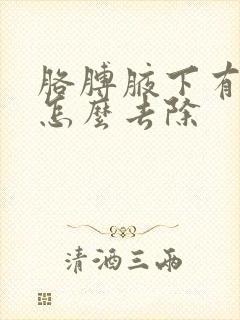 胳膊腋下有
怎麼去除
清酒三兩